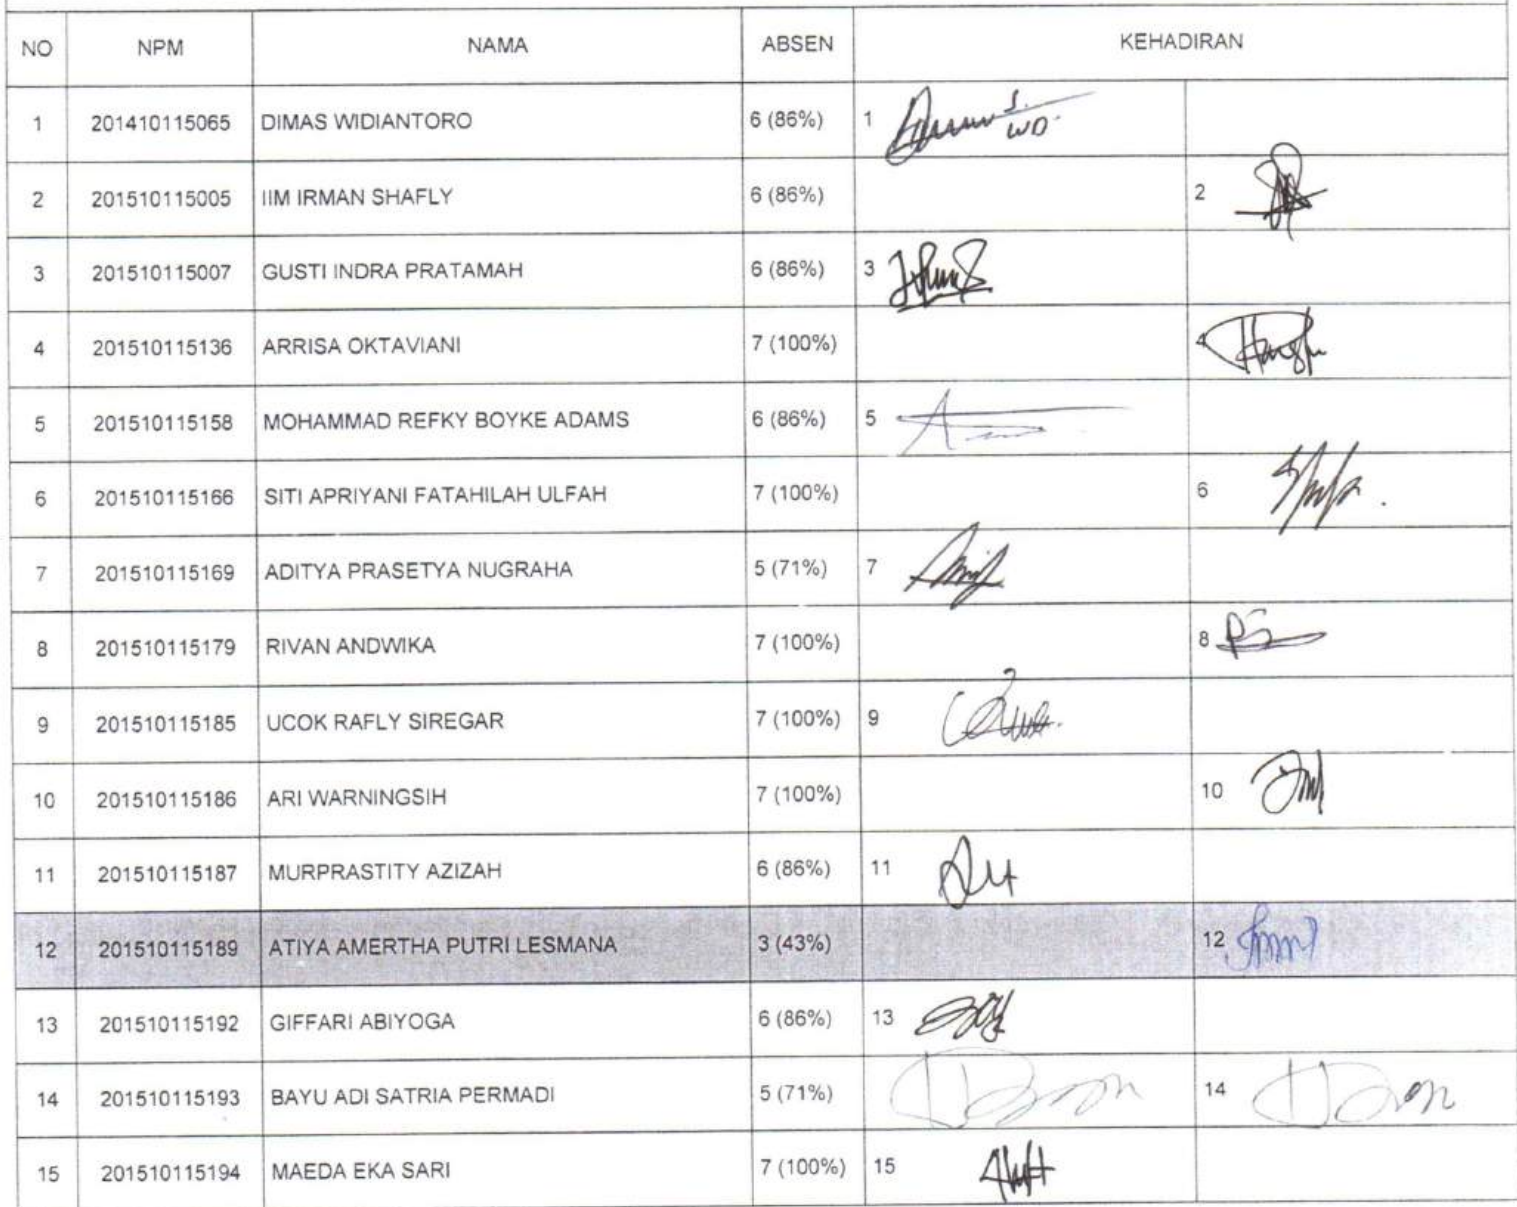 NO NPM NAMA ABSEN KEHADIRAN
1 201410115065 DIMAS WIDIANTORO 6 (86%) 1
2 201510115005 IIM IRMAN SHAFLY 6 (86%) 2
3 201510115007 GUSTI INDRA PRATAMAH 6 (86%) 3
4 201510115136 ARRISA OKTAVIANI 7 (100%) 4
5 201510115158 MOHAMMAD REFKY BOYKE ADAMS 6 (86%) 5
6 201510115166 SITI APRIYANI FATAHILAH ULFAH 7 (100%) 6
7 201510115169 ADITYA PRASETYA NUGRAHA 5 (71%) 7
8 201510115179 RIVAN ANDWIKA 7 (100%) 8
9 201510115185 UCOK RAFLY SIREGAR 7 (100%) 9
10 201510115186 ARI WARNINGSIH 7 (100%) 10
11 201510115187 MURPRASTITY AZIZAH 6 (86%) 11
12 201510115189 ATIYA AMERTHA PUTRI LESMANA 3 (43%) 12
13 201510115192 GIFFARI ABIYOGA 6 (86%) 13
14 201510115193 BAYU ADI SATRIA PERMADI 5 (71%) 14
15 201510115194 MAEDA EKA SARI 7 (100%) 15